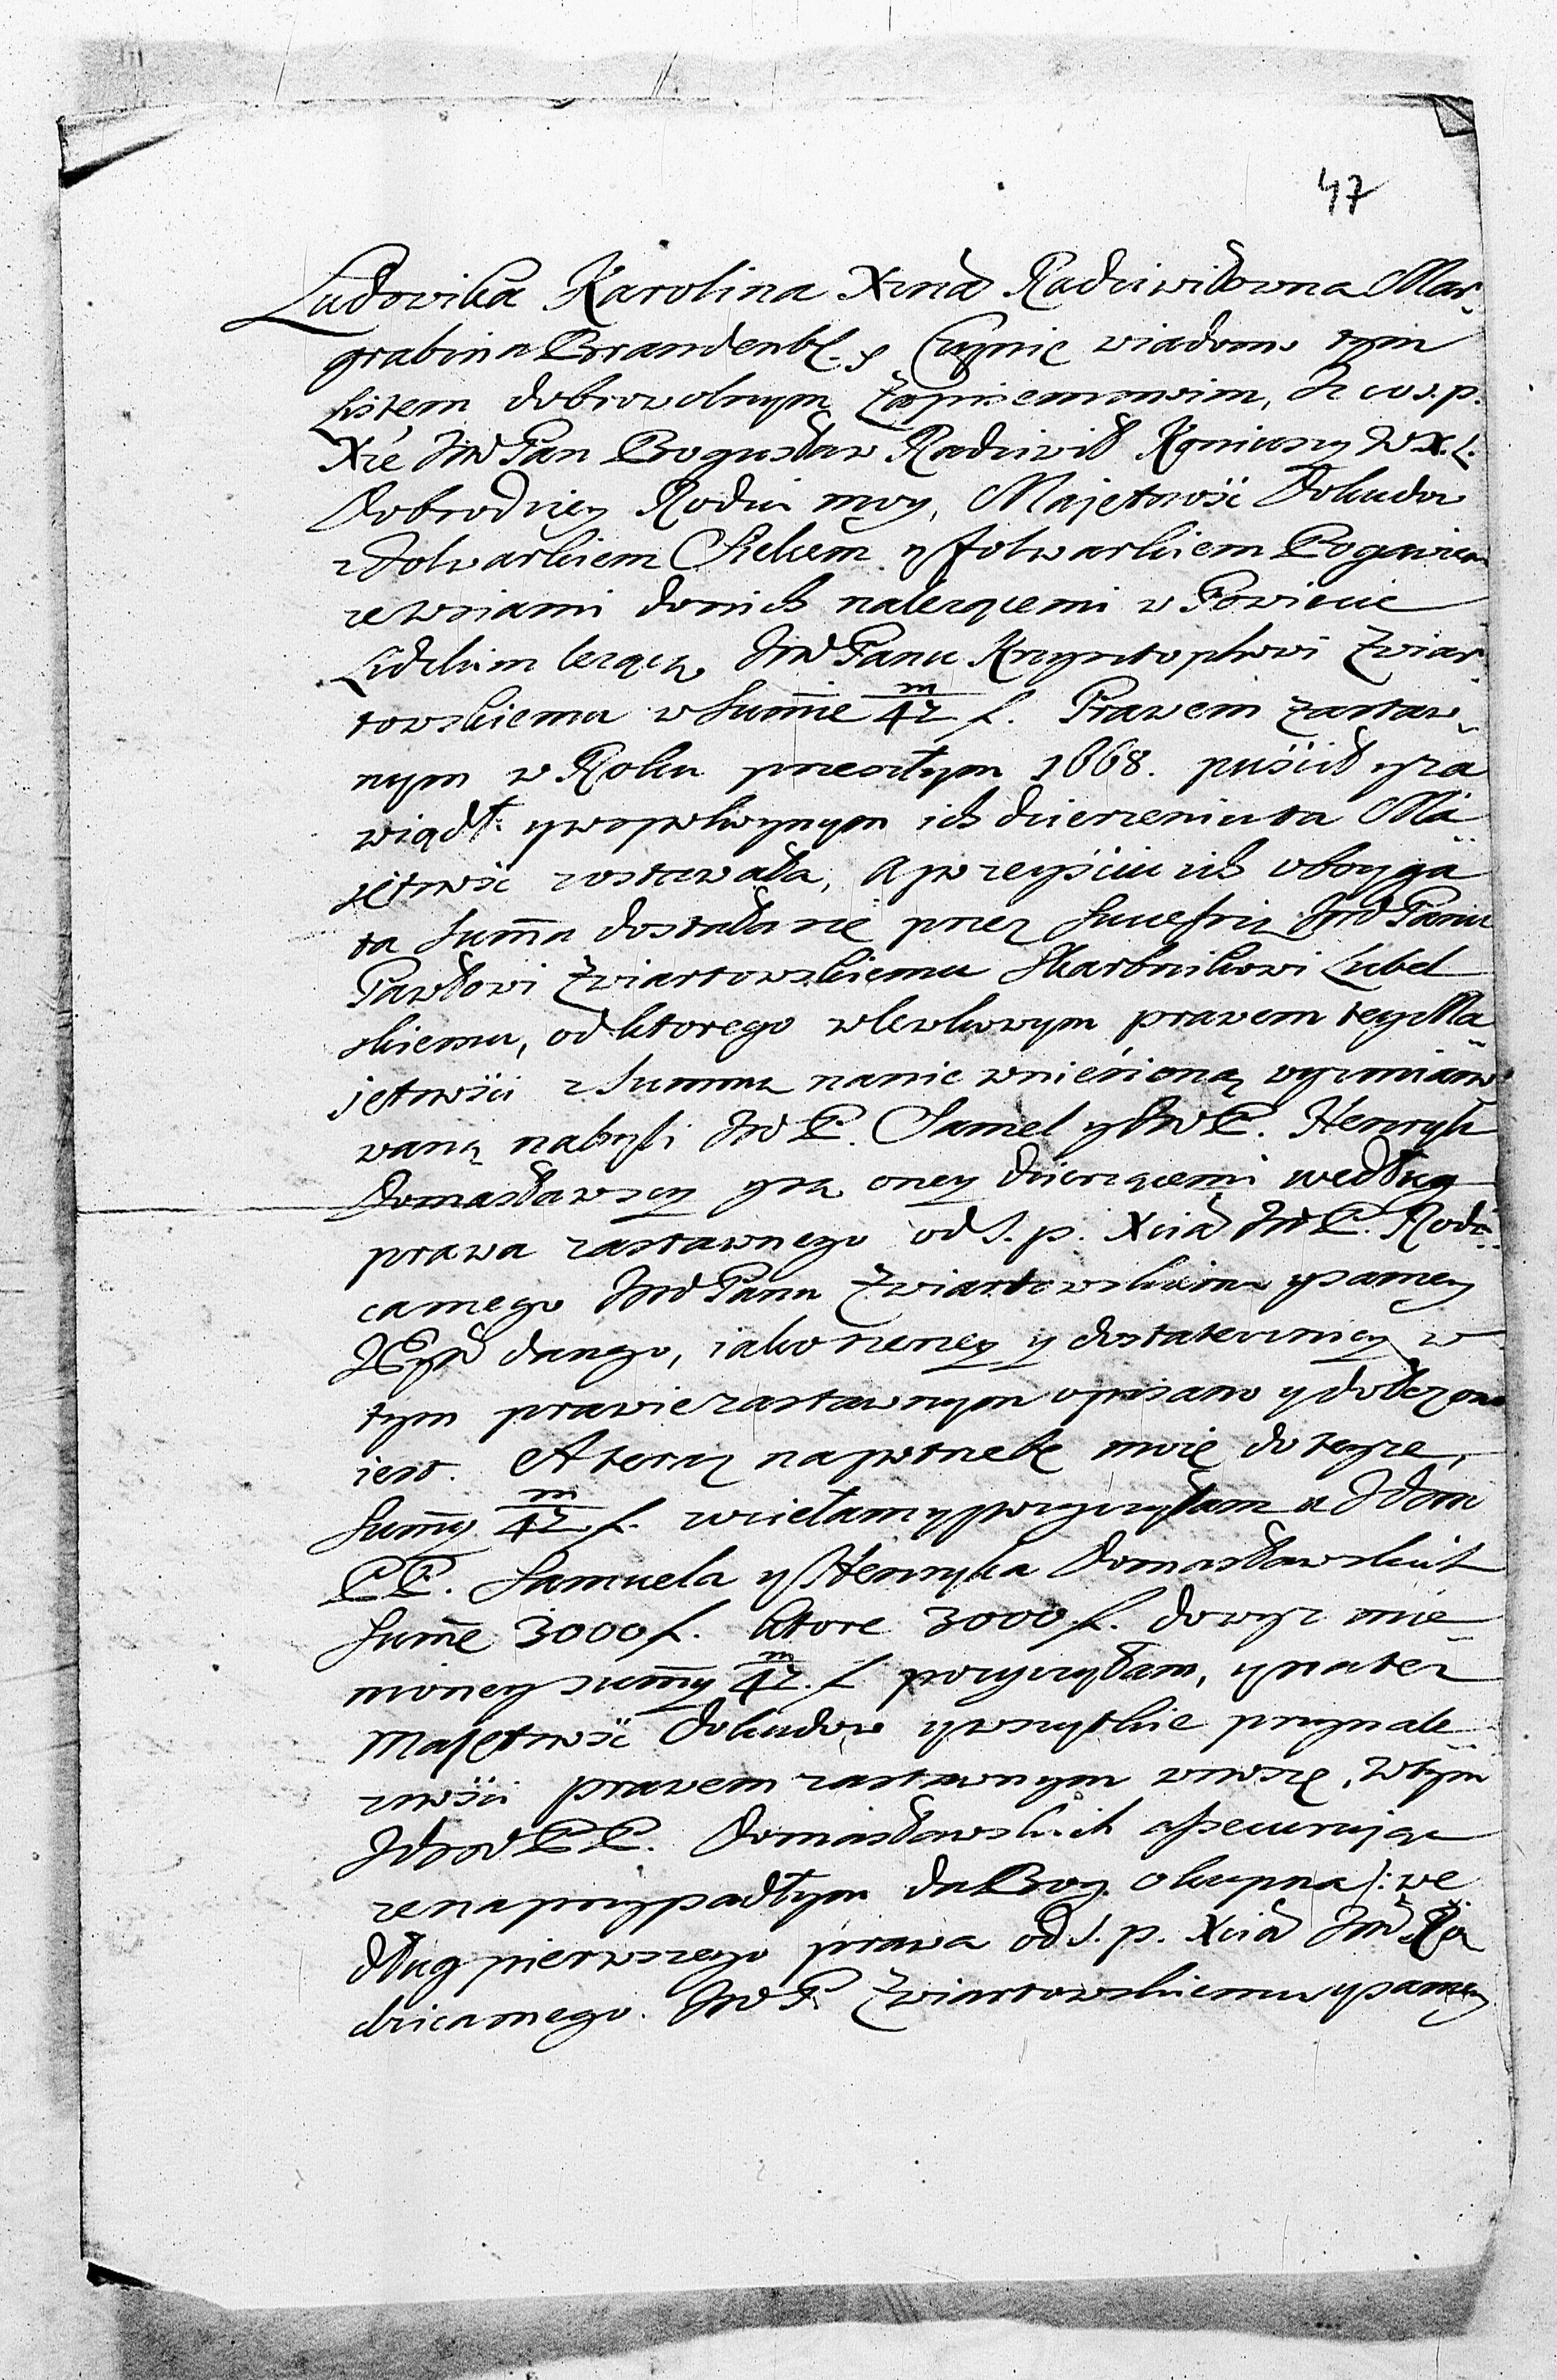 47
Ludowika Karolina Xżna Radziwiłłowna Mar-
grabina Brandenb. Czynię wiadomo tym
Listem dobrowolnym Zapisem moim, Iż co ś. p.
Xże Jmć Pan Bogusław Radziwił Koniuszy W X. L.
Dobrodziey Rodzic moy, Majętność Dokudow
z Folwarkiem y Folwarkiem
ze wsiami do nich należącemi w Powiecie
Lidzkim leżącą Jmć Panu Krzysztophowi Zwiar-
towskiemu w Sum̃ie 42 m f. Prawem zastaw-
nym w Roku przeszłym 1668. puścił y za-
wiódł: y w spokoynym ich dzierżeniu ta Ma-
jętność zostawała, A po zeyściu ich obojga
ta Sum̃a dostała się przez Succesią Jmć Panu
Pawłowi Zwiartowskiemu Skarbnikowi Lubel
skiemu, od ktorego wlewkowym prawem tey Ma-
jętności z Summą na nię wnieśioną wyzmiano-
waną nabyli Jmć P. Samel y Jmć P. Henryk
Domasławscy y są oney dzierżącemi według
prawa zastawnego od ś. p. Xcia Jmć P. Rodzi-
ca mego Jmć Panu Zwiartowskiemu y samey
JEyM danego, iako szerzey y dostateczniey w
tym prawie zastawnym opisano y dołożono
iest. A teraz na potrzebę moię do teyże
Sum̃y 42 m f. wziełam y pożyczyłam u Jchm
PP. Samuela y Henryka Domasławskich
Sum̃e 3000 f. ktore 3000 f. do wyż mie-
nioney sum̃y 42 m f. pożyczyłam, y na tez
Majętność Dokudow y wszytkie przynale-
żnośći prawem zastawnym wnoszę, w tym
Jchmć PP. Domasławskich assecurując
że na przypadłym da Bog okupna /: we
dług pierwszego prawa od ś. p. Xcia Jmć Ro
dzica mego. Jmć P. Zwiartowskiemu y samey